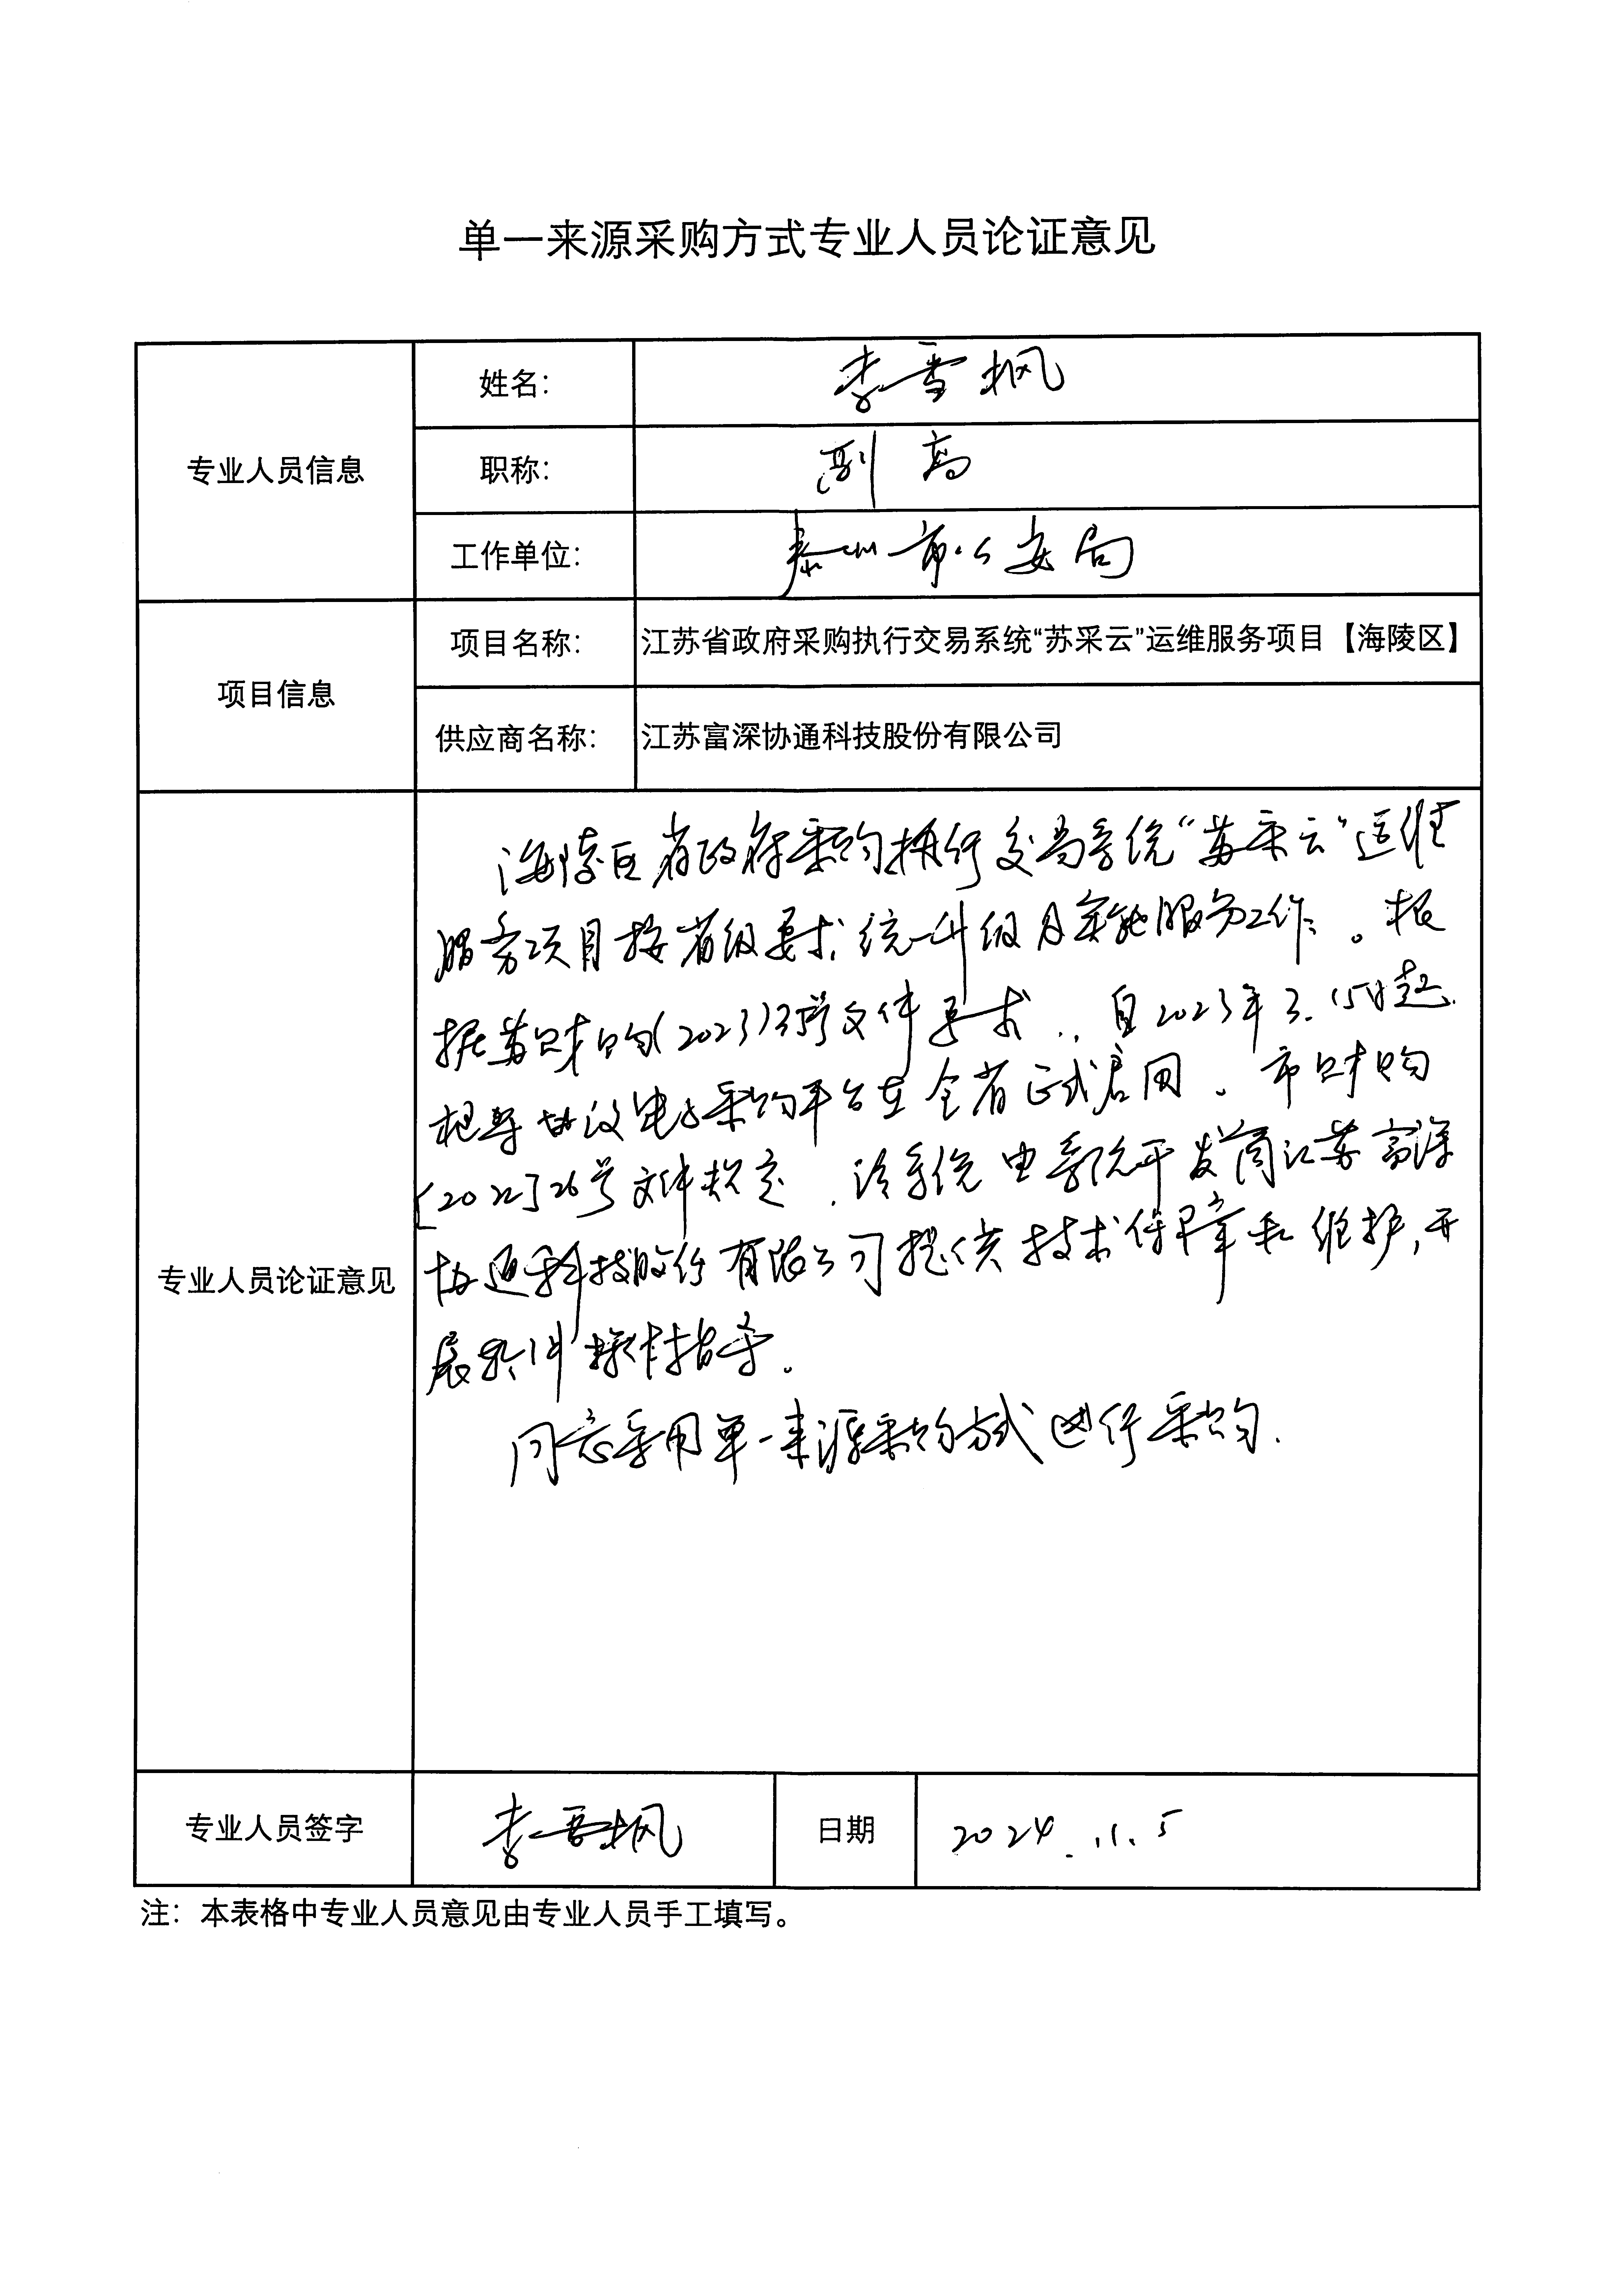 单一来源采购方式专业人员论证意见
专业人员信息
姓名：
李雪枫
职称：
副高
工作单位：
泰州市公安局
项目信息
项目名称：
江苏省政府采购执行交易系统“苏采云”运维服务项目【海陵区】
供应商名称：
江苏富深协通科技股份有限公司
专业人员论证意见
海陵区省政府采购执行交易系统“苏采云”运维
服务项目按省级要求统一升级及实施服务工作。根
据苏财购(2023)号文件要求，自2023年3.15日起
框架协议电子采购平台在全省正式启用。市财购
[2022]26号文件规定，该系统由系统开发商江苏富深
协通科技股份有限公司提供技术保障和维护，开
展软件操作指导。
同意采用单一来源采购方式进行采购.
专业人员签字
李雪枫
日期
2024.11.5
注：本表格中专业人员意见由专业人员手工填写。